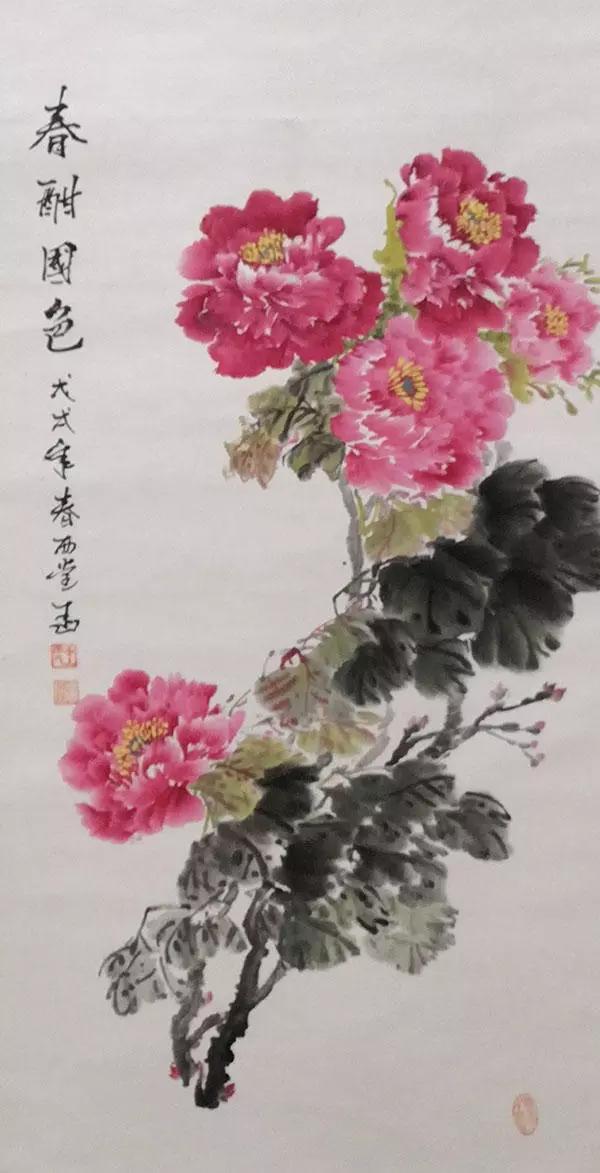 春酣國色
戊戌年春西堂画